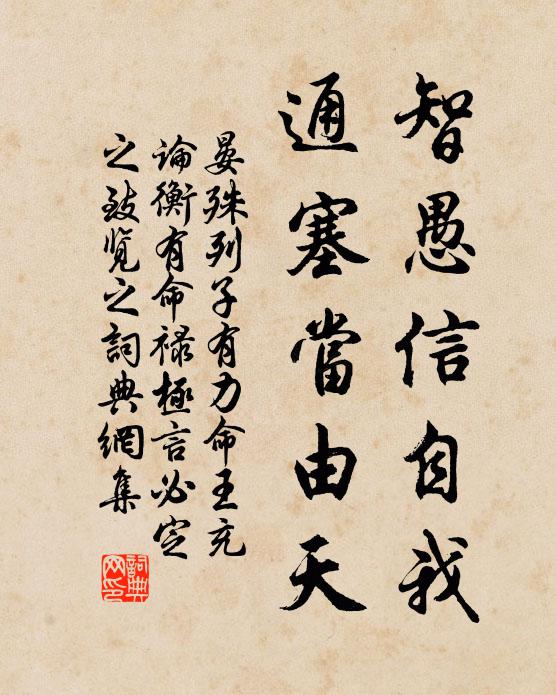 智愚信自我
通塞當由天
晏殊列子有力命王充
論衡有命禄極言必定
之致覽之詞典網集
詞典网印